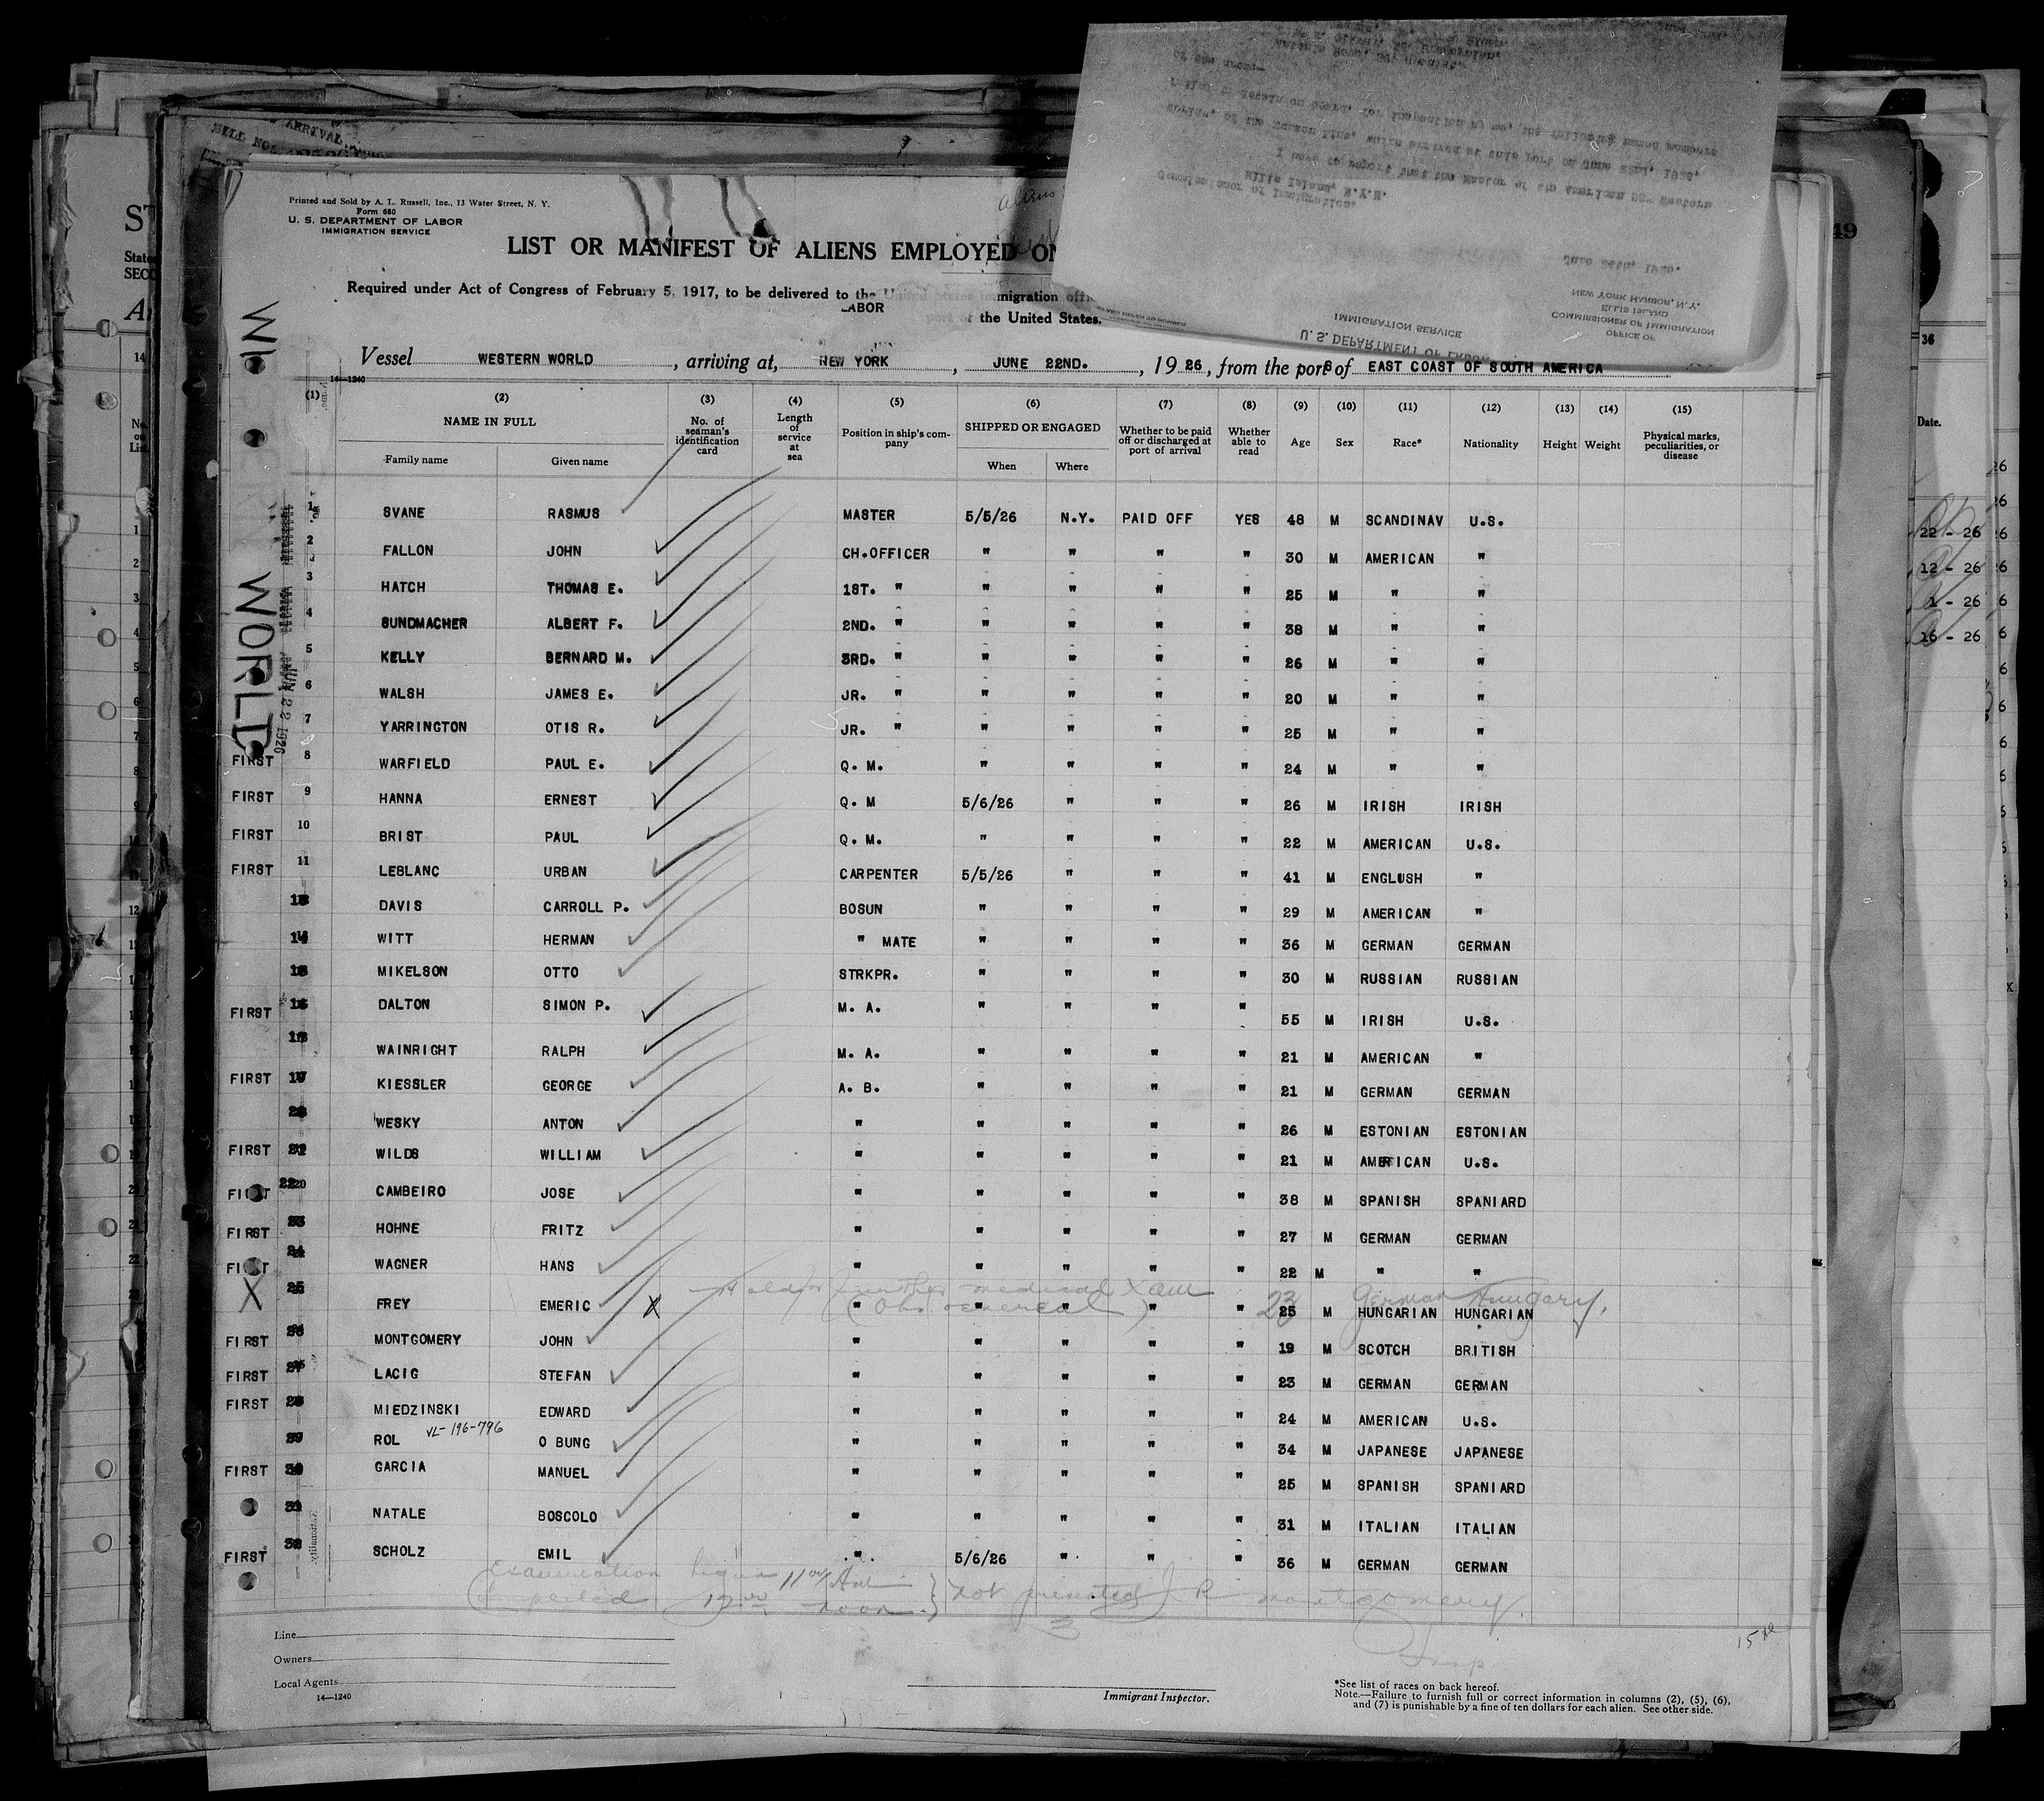 Printed and Sold by A. L. Russell, Inc., 13 Water Street, N. Y.
Form 680
U. S. DEPARTMENT OF LABOR
IMMIGRATION SERVICE
LIST OR MANIFEST OF ALIENS EMPLOYED ON
Required under Act of Congress of February 5, 1917, to be delivered to the United States immigration
LABOR
port of the United States.
Vessel WESTERN WORLD, arriving at, NEW YORK, JUNE 22ND., 1926, from the ports of EAST COAST OF SOUTH AMERICA
14—1240
(1) (2) (3) (4) (5) (6) (7) (8) (9) (10) (11) (12) (13) (14) (15)
NAME IN FULL No. of seaman's identification card Length of service at sea Position in ship's company SHIPPED OR ENGAGED Whether to be paid off or discharged at port of arrival Whether able to read Age Sex Race* Nationality Height Weight Physical marks, peculiarities, or disease
Family name Given name When Where
1 SVANE RASMUS MASTER 5/5/26 N.Y. PAID OFF YES 48 M SCANDINAV U.S.
2 FALLON JOHN CH.OFFICER " " " " 30 M AMERICAN "
3 HATCH THOMAS E. 1ST. " " " " " 25 M " "
4 SUNDMACHER ALBERT F. 2ND. " " " " " 38 M " "
5 KELLY BERNARD M. 3RD. " " " " " 26 M " "
6 WALSH JAMES E. JR. " " " " " 20 M " "
7 YARRINGTON OTIS R. JR. " " " " " 25 M " "
FIRST 8 WARFIELD PAUL E. Q. M. " " " " 24 M " "
FIRST 9 HANNA ERNEST Q. M 5/6/26 " " " 26 M IRISH IRISH
FIRST 10 BRIST PAUL Q. M. " " " " 22 M AMERICAN U.S.
FIRST 11 LEBLANC URBAN CARPENTER 5/5/26 " " " 41 M ENGLUSH "
DAVIS CARROLL P. BOSUN " " " " 29 M AMERICAN "
14 WITT HERMAN " MATE " " " " 36 M GERMAN GERMAN
MIKELSON OTTO STRKPR. " " " " 30 M RUSSIAN RUSSIAN
FIRST 16 DALTON SIMON P. M. A. " " " " 55 M IRISH U.S.
WAINRIGHT RALPH M. A. " " " " 21 M AMERICAN "
FIRST KIESSLER GEORGE A. B. " " " " 21 M GERMAN GERMAN
WESKY ANTON " " " " " 26 M ESTONIAN ESTONIAN
FIRST WILDS WILLIAM " " " " " 21 M AMERICAN U.S.
FIRST 22 20 CAMBEIRO JOSE " " " " " 38 M SPANISH SPANIARD
FIRST HOHNE FRITZ " " " " " 27 M GERMAN GERMAN
FIRST 24 WAGNER HANS " " " " " 22 M " "
Hold for further medical Xam 23 German Hungary.
X 25 FREY EMERIC X " " " " " 25 M HUNGARIAN HUNGARIAN
FIRST MONTGOMERY JOHN " " " " " 19 M SCOTCH BRITISH
FIRST 27 LACIG STEFAN " " " " " 23 M GERMAN GERMAN
FIRST 28 MIEDZINSKI EDWARD " " " " " 24 M AMERICAN U.S.
VL-196-796
ROL O BUNG " " " " " 34 M JAPANESE JAPANESE
FIRST 30 GARCIA MANUEL " " " " " 25 M SPANISH SPANIARD
31 NATALE BOSCOLO " " " " " 31 M ITALIAN ITALIAN
FIRST 32 SCHOLZ EMIL " 5/6/26 " " " 36 M GERMAN GERMAN
Examination begun 11 00 AM
Completed 12 00 noon } not presented J R Montgomery.
3
Insp
Line
Owners
Local Agents
14—1240
Immigrant Inspector.
*See list of races on back hereof.
Note.—Failure to furnish full or correct information in columns (2), (5), (6),
and (7) is punishable by a fine of ten dollars for each alien. See other side.
WORLD
JUN 22 1926
U. S. DEPARTMENT OF LABOR
IMMIGRATION SERVICE
OFFICE OF
COMMISSIONER OF IMMIGRATION
ELLIS ISLAND
NEW YORK HARBOR, N.Y.
June 24th, 1926.
Commissioner of Immigration,
Ellis Island, N.Y.H.
I have to report that the Master of the American SS. Western
World, of the Munson Line, which arrived at this port on June 22nd, 1926,
failed to detain on board, for inspection by me, the following named members
of the crew:—
Date.
22 - 26
12 - 26
1 - 26
16 - 26